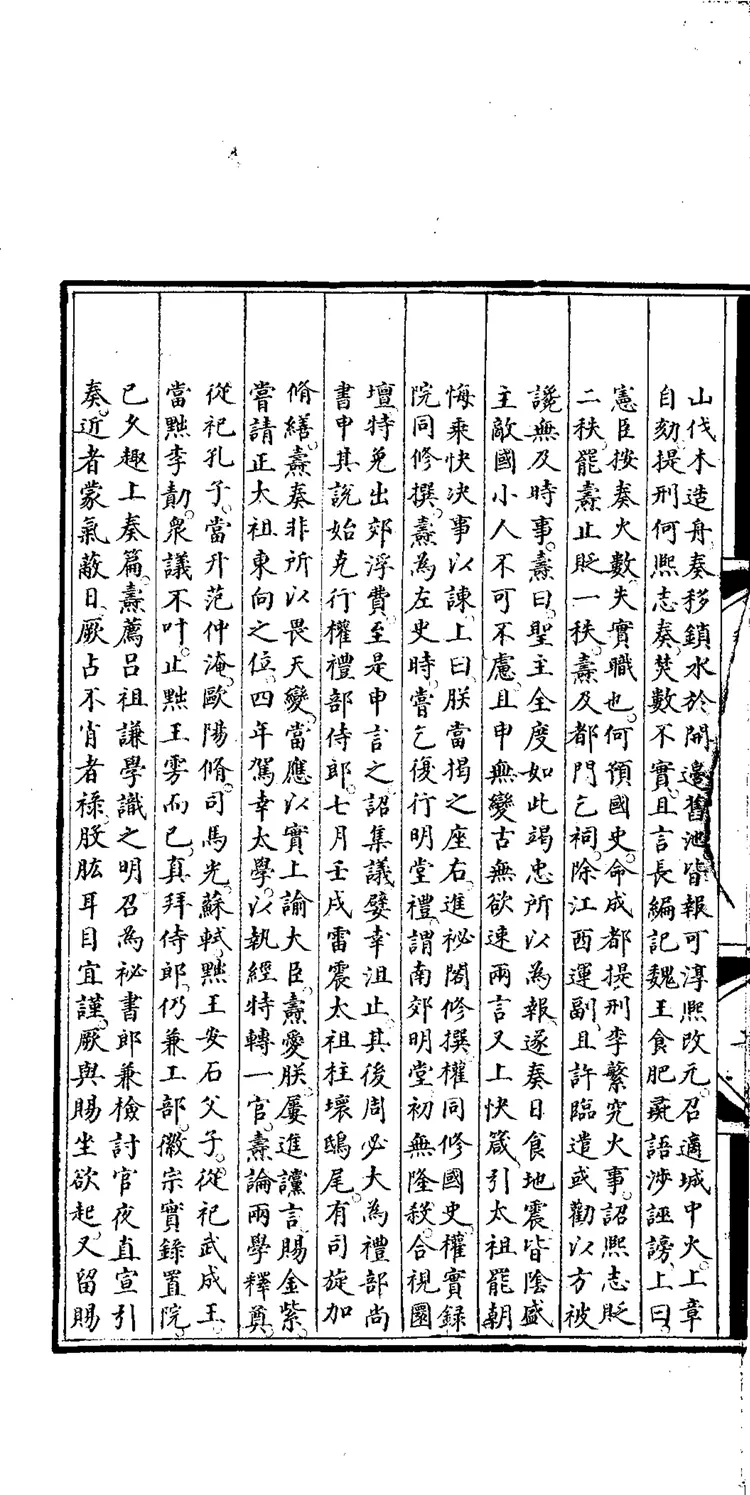 山伐木造舟奏移鎖水於開邊舊池皆報可淳熙改元召適城中火上章
自劾提刑何熙志奏焚數不實且言長編記魏王食肥彘語涉誣謗上曰
憲臣按奏火數失實職也何預國史命成都提刑李繁究火事詔熙志貶
二秩罷燾止貶一秩燾及都門乞祠除江西運副且許臨遣或勸以方被
讒無及時事燾曰聖主全度如此竭忠所以為報遂奏日食地震皆陰盛
主敵國小人不可不慮且申無變古無欲速兩言又上快箴引太祖罷朝
悔乘快決事以諫上曰朕當揭之座右進祕閣修撰權同修國史權實錄
院同修撰燾為左史時嘗乞復行明堂禮謂南郊明堂初無隆殺合視圜
壇特免出郊浮費至是申言之詔集議嬖幸沮止其後周必大為禮部尚
書申其說始克行權禮部侍郎七月壬戌雷震太祖柱壞鴟尾有司旋加
脩繕燾奏非所以畏天變當應以實上諭大臣燾愛朕屢進讜言賜金紫
嘗請正太祖東向之位四年駕幸太學以執經特轉一官燾論兩學釋奠
從祀孔子當升范仲淹歐陽脩司馬光蘇軾黜王安石父子從祀武成王
當黜李勣衆議不叶止黜王雱而已真拜侍郎仍兼工部徽宗實錄置院
已久趣上奏篇燾薦呂祖謙學識之明召為祕書郎兼檢討官夜直宣引
奏近者蒙氣蔽日厥占不肖者祿股肱耳目宜謹厥與賜坐欲起又留賜